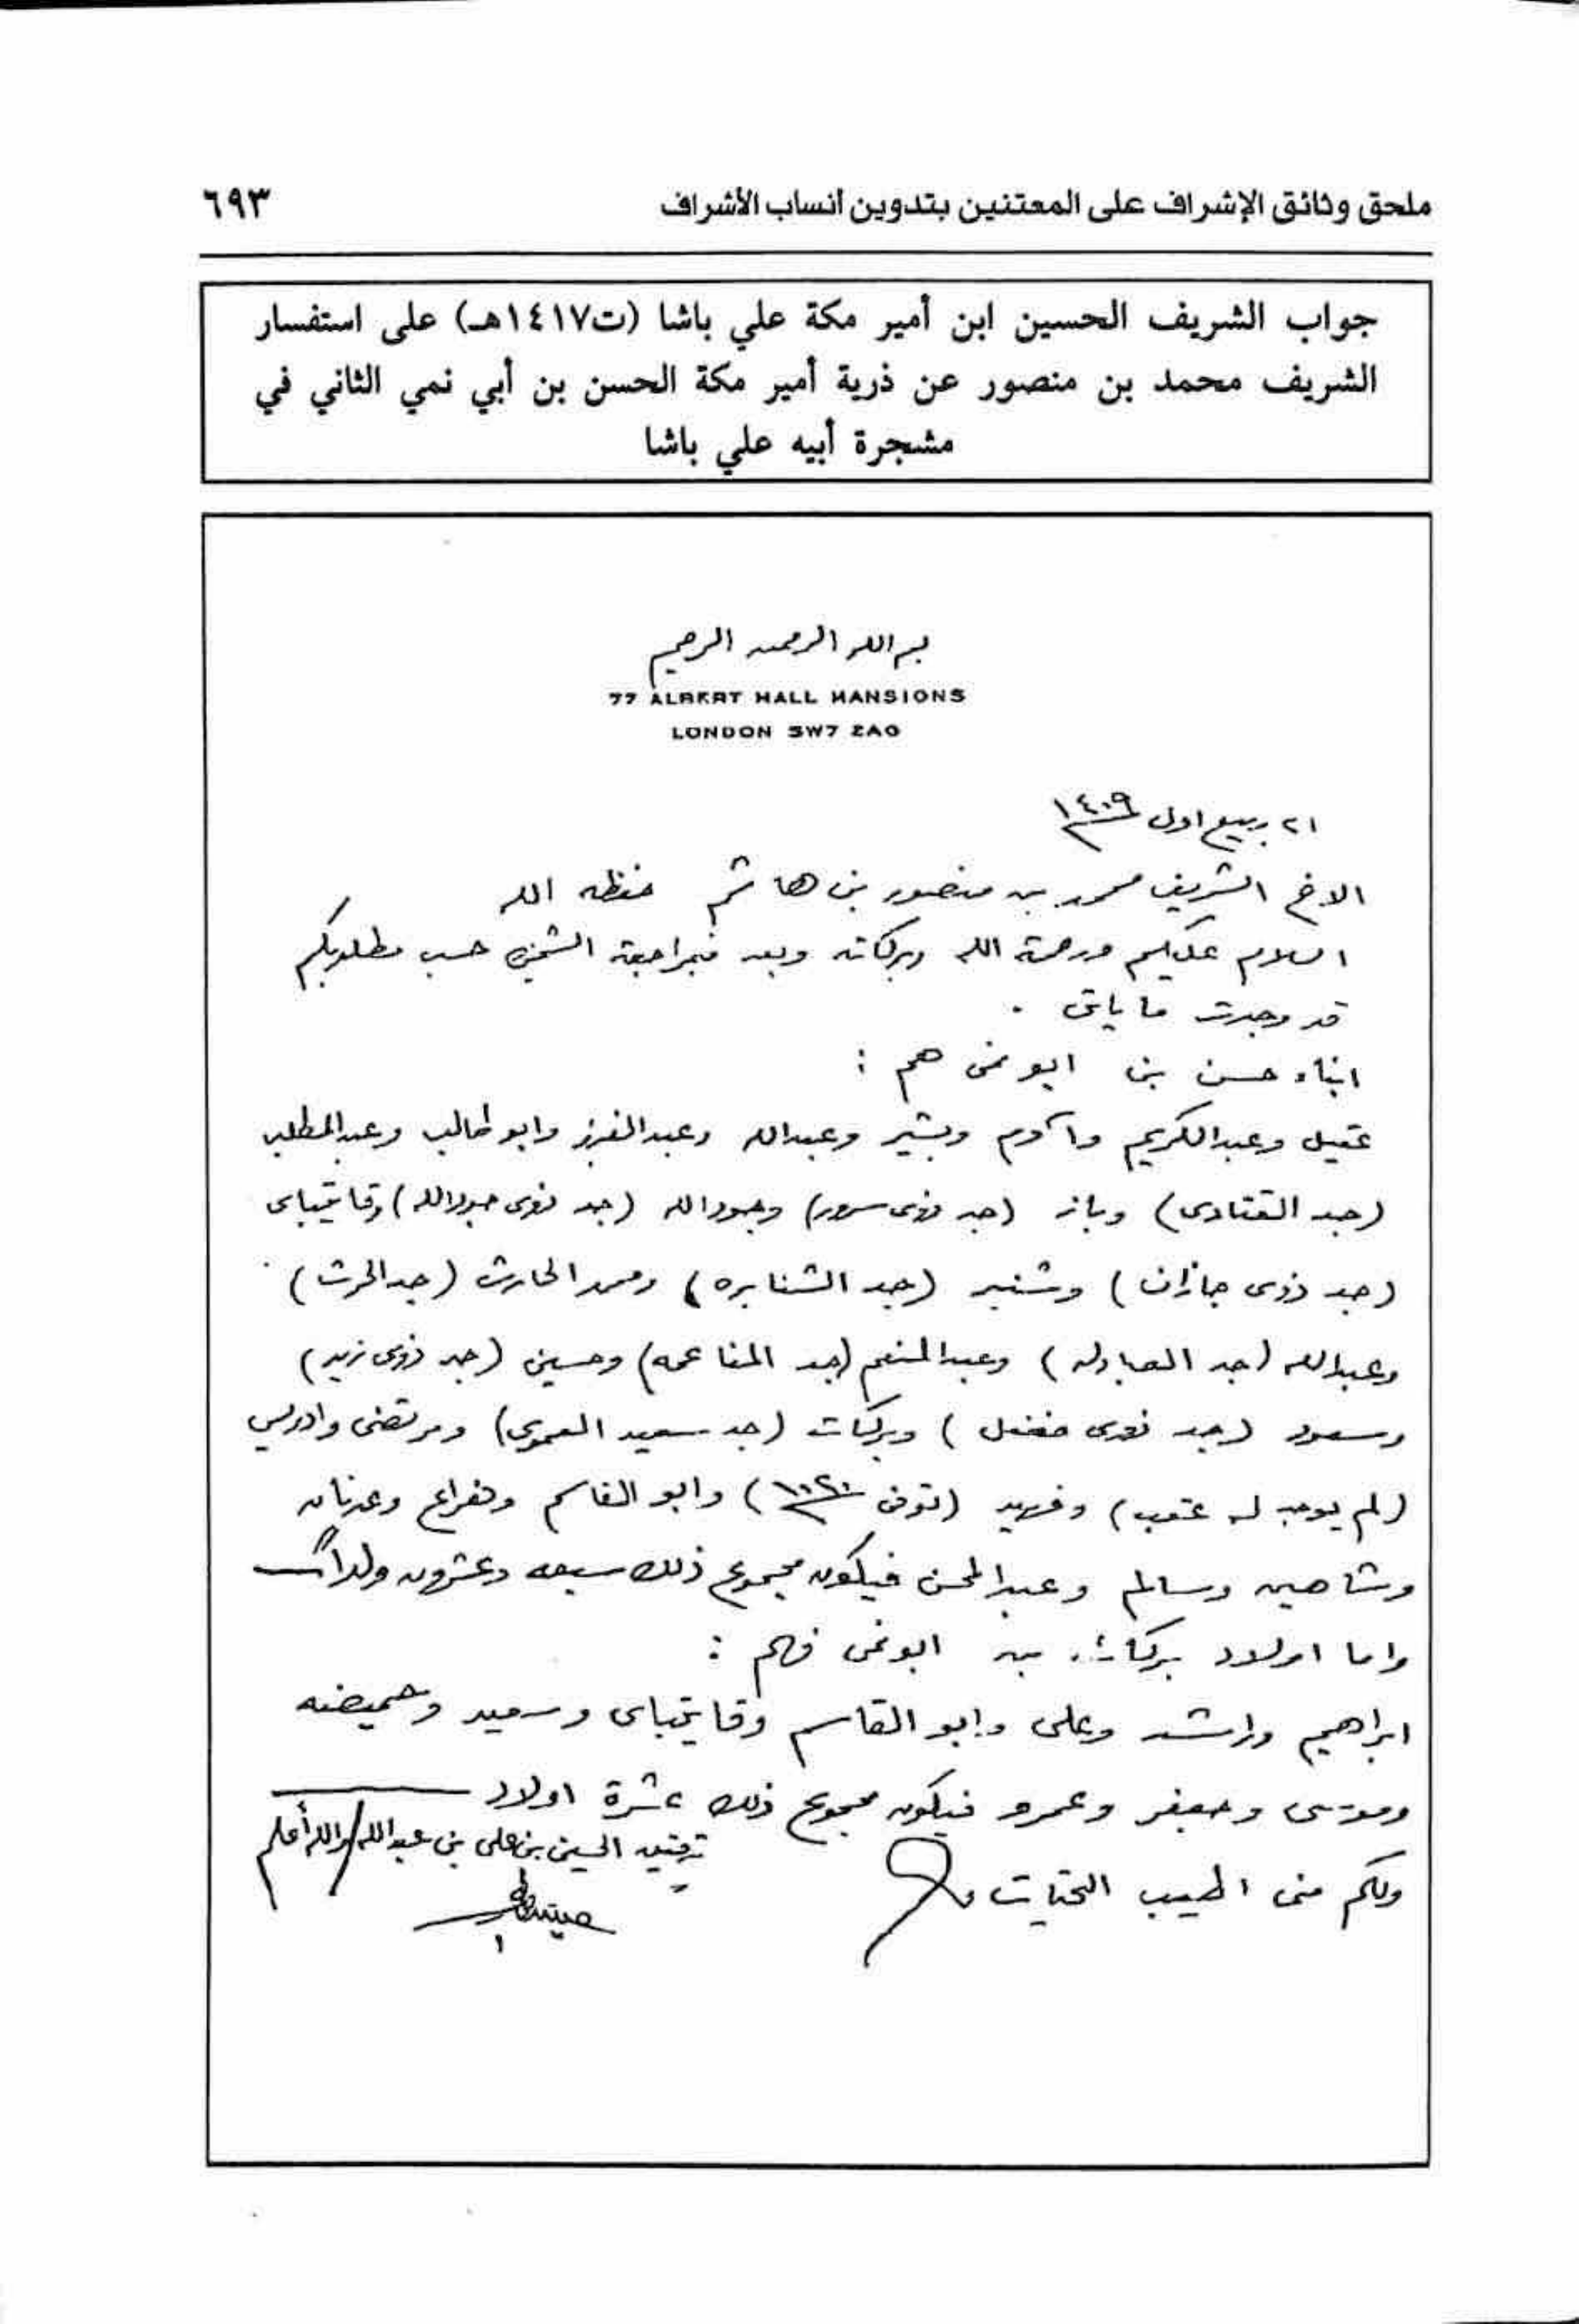 ملحق وثائق الإشراف على المعتنين بتدوين أنساب الأشراف ٦٩٣
جواب الشريف الحسين ابن أمير مكة علي باشا (ت١٤١٧هـ) على استفسار
الشريف محمد بن منصور عن ذرية أمير مكة الحسن بن أبي نمي الثاني في
مشجرة أبيه علي باشا
بسم الله الرحمن الرحيم
77 ALBERT HALL MANSIONS
LONDON SW7 2AG
٢١ ربيع اول ١٤٠٩
الاخ الشريف محمد بن منصور بن هاشم حفظه الله
السلام عليكم ورحمة الله وبركاته وبعد فبمراجعة الشجره حسب مطلوبكم
قد وجدت ما ياتى .
ابناء حسن بن ابو نمى هم :
عقيل وعبدالكريم وآدم وبشير وعبدالله وعبدالعزيز وابو طالب وعبدالمطلب
(جد القتادى) وباز (جد ذوى سرور) وجودالله (جد ذوى جودالله) وقايتباى
(جد ذوى جازان) وشنبر (جد الشنابره) ومحمد الحارث (جد الحرث)
وعبدالله (جد العبادله) وعبدالمنعم (جد المناعمه) وحسين (جد ذوى زيد)
وسعود (جد ذوى) وبركات (جد سعيد العموى) ومرتضى وادريس
(لم يوجد له عقب) وفهيد (توفى ١٠٢١) وابو القاسم وهزاع وعدنان
وشاهين وسالم وعبدالمحسن فيكون مجموع ذلك سبعه وعشرون ولداً
واما اولاد بركات بن ابونمى فهم :
ابراهيم وراشد وعلى وابو القاسم وقايتباى وسعيد وحميضه
وموسى وجعفر وعمرو فيكون مجموع ذلك عشرة اولاد
والله أعلم
ولكم منى اطيب التحيات
الحسين بن على بن عبدالله